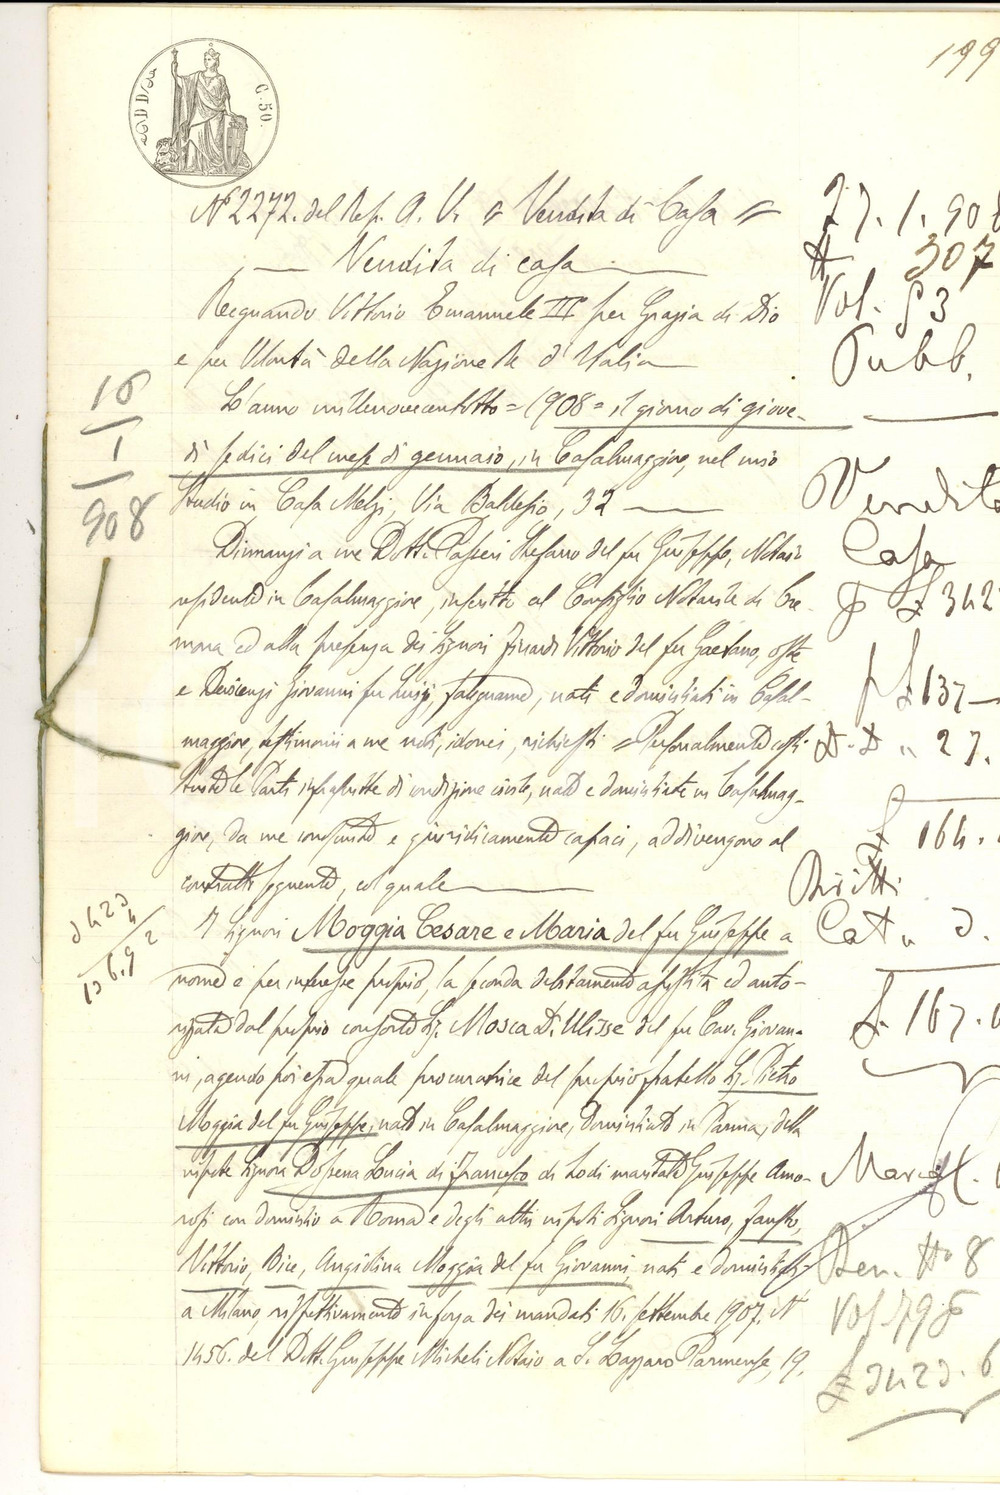 199
C. 50.
N° 2272. del Rep. A. V. = Vendita di Casa =
Vendita di casa
Regnando Vittorio Emanuele III per Grazia di Dio
e per Volontà della Nazione Re d'Italia
L'anno millenovecentotto = 1908 = il giorno di giove-
dì sedici del mese di gennaio, in Casalmaggiore, nel mio
studio in Casa Melzi, Via Baldesio, 32
Dinnanzi a me Dott. Passeri Stefano del fu Giuseppe, Notaio
residente in Casalmaggiore, inscritto al Consiglio Notarile di Cre-
mona ed alla presenza dei Signori Finardi Vittorio del fu Gaetano, oste
e Denicenzi Giovanni fu Luigi, falegname, nati e domiciliati in Casal-
maggiore, testimonii a me noti, idonei, richiesti = Personalmente costi-
tuite le Parti infrascritte di condizione civile, nate e domiciliate in Casalmag-
giore, da me conosciute e giuridicamente capaci, addivengono al
contratto seguente, col quale
I Signori Moggia Cesare e Maria del fu Giuseppe a
nome e per interesse proprio, la seconda debitamente assistita ed auto-
rizzata dal proprio consorte Sig. Mosca D. Ulisse del fu Cav. Giovan-
ni, agendo poi essa quale procuratrice del proprio fratello Sig. Pietro
Moggia del fu Giuseppe, nato in Casalmaggiore, domiciliato in Parma, della
nipote Signora Dossena Lucia di Francesco di Lodi maritata Giuseppe Amo-
rosi con domicilio a Roma e degli altri nipoti Signori Arturo, Fausto,
Vittorio, Bice, Angiolina Moggia del fu Giovanni, nati e domiciliati
a Milano, rispettivamente in forza dei mandati 16. settembre 1907. N
1456. del Dott. Giuseppe Micheli Notaio a S. Lazzaro Parmense, 19.
16
1
908
27. 1. 908
N 307
Vol. 53
Pubb.
Vendita
Casa
£ 342
£ 137
27.
£ 164.
Diritti
Cat.
£. 167.
Ben. N° 8
Vol. 798
£ 3423. 6